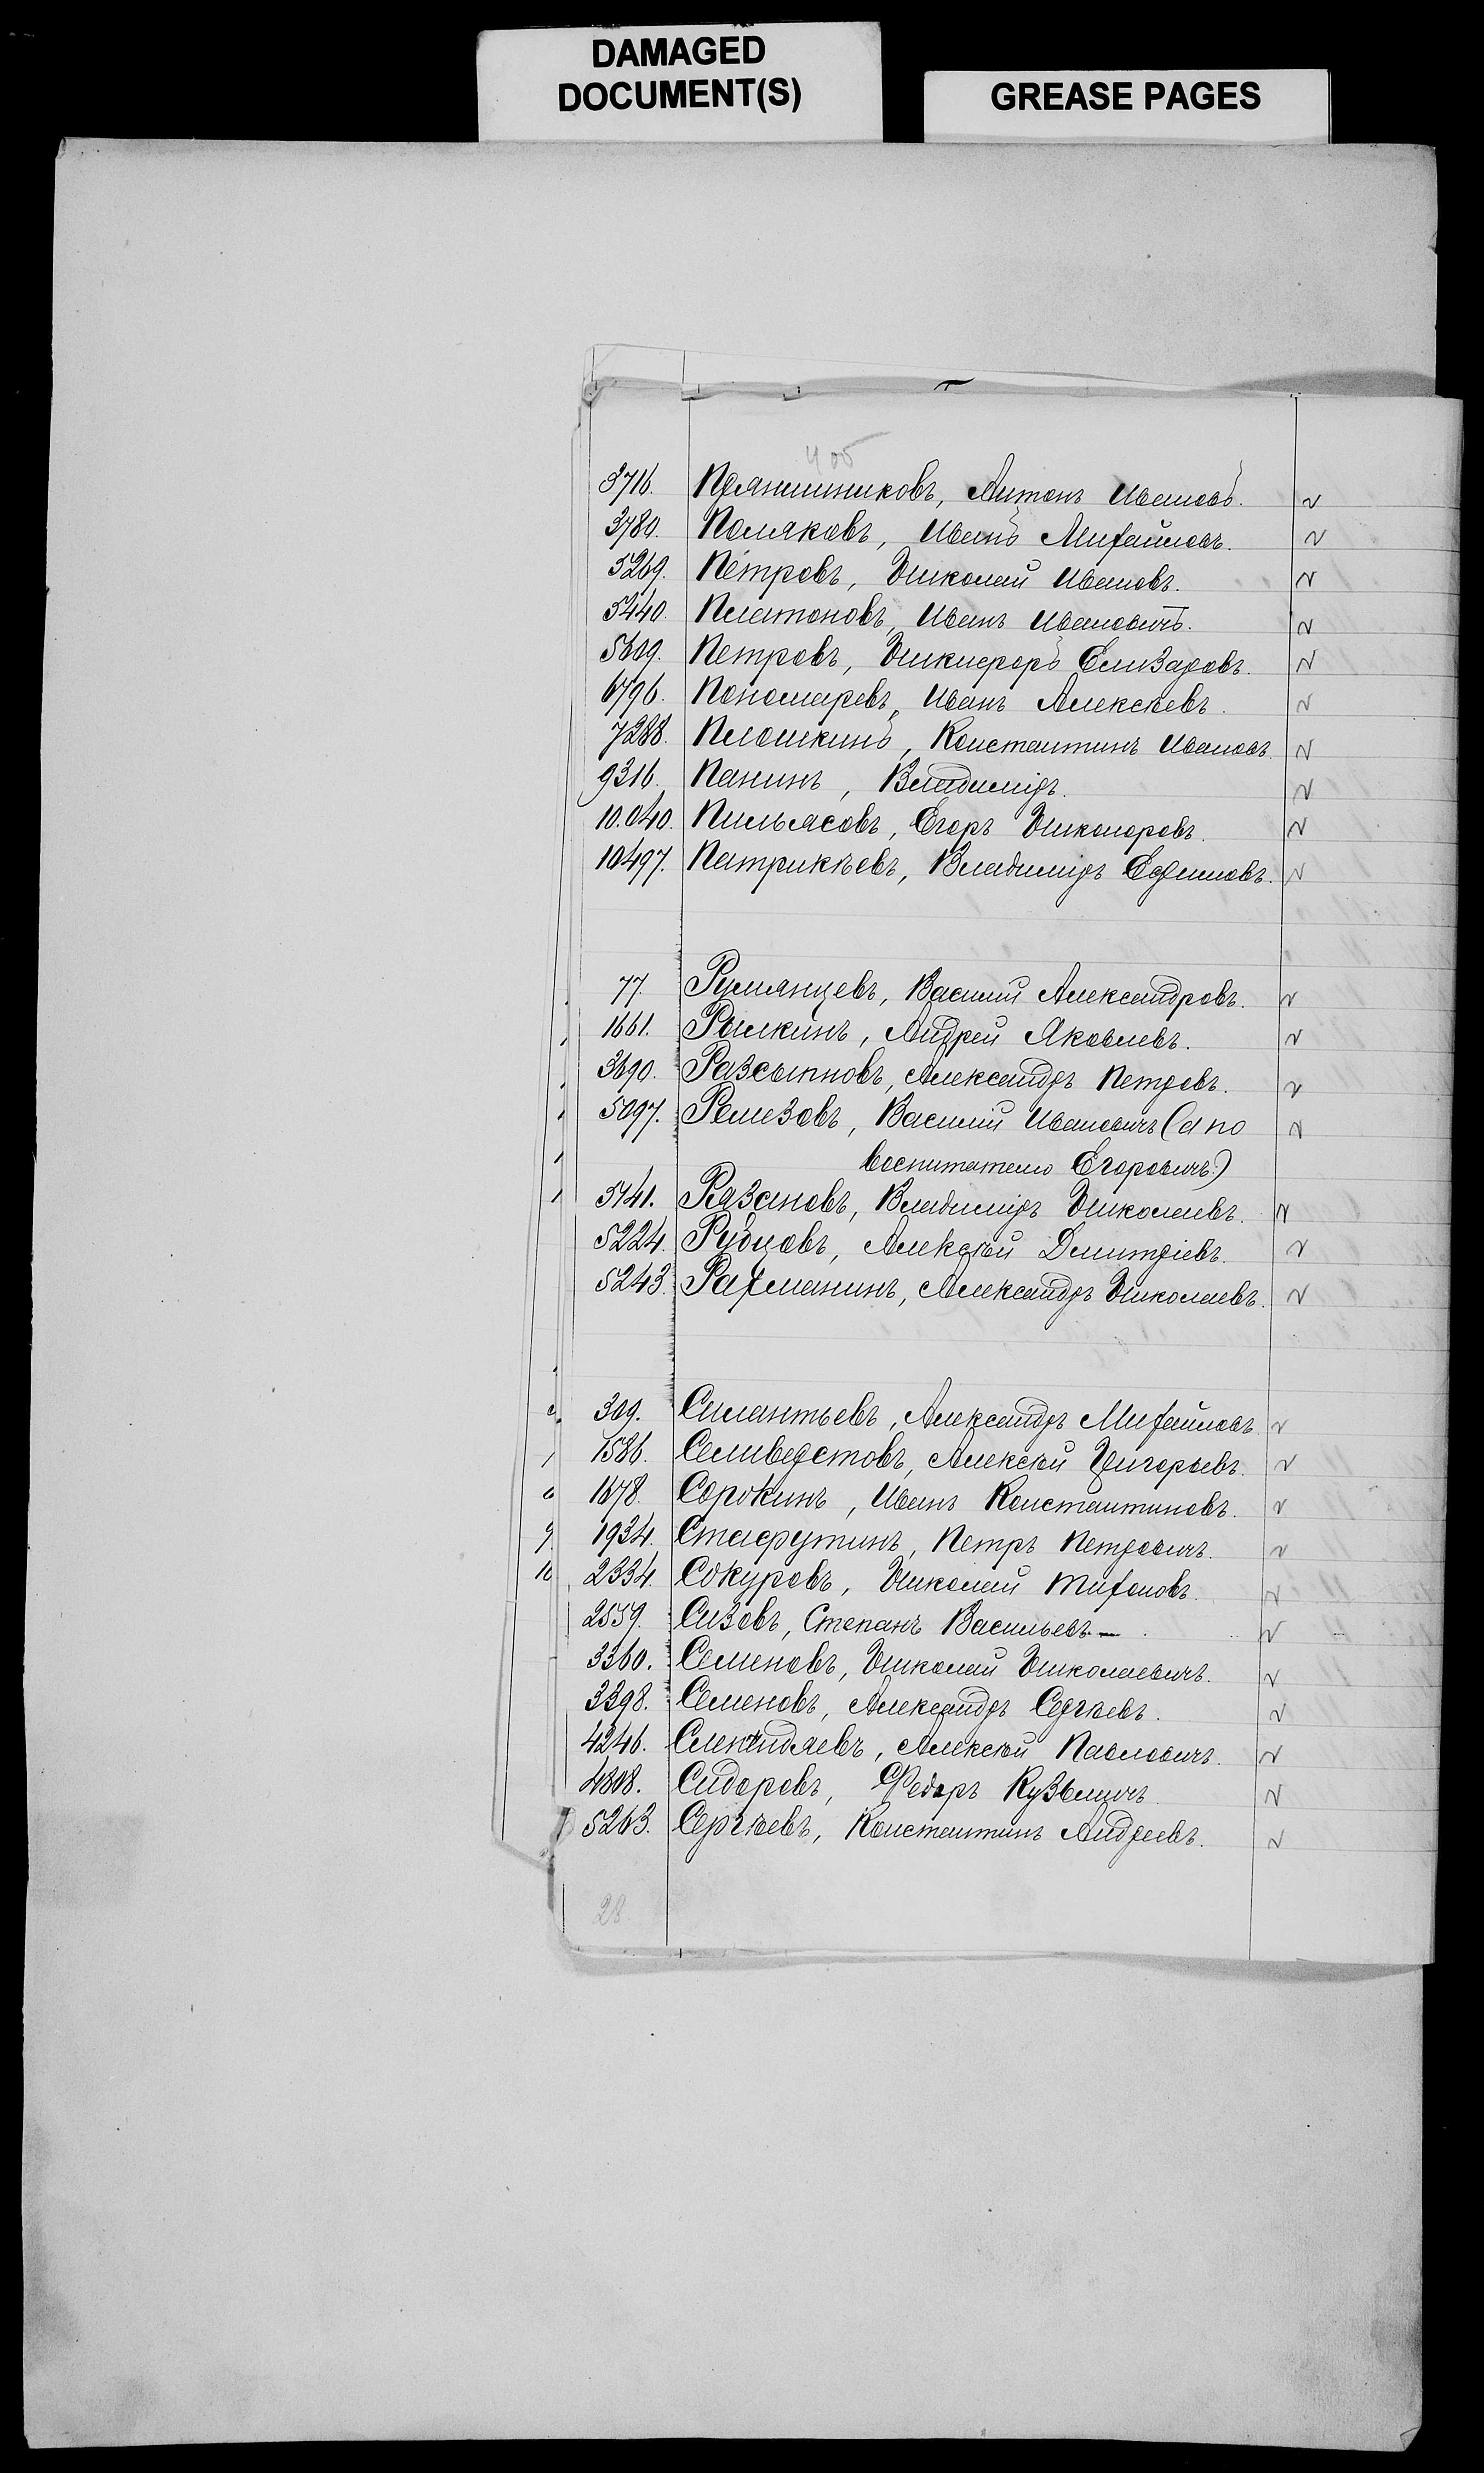 DAMAGED
DOCUMENT(S)
GREASE PAGES
3716. Прянишниковъ, Антонъ Ивановъ.
3780. Поляковъ, Иванъ Михайловъ.
5269. Петровъ, Николай Ивановъ.
5440. Платоновъ, Иванъ Ивановичъ.
5609. Петровъ, Никифоръ Елизаровъ.
6796. Пономаревъ, Иванъ Алексѣевъ.
7288. Плошкинъ, Константинъ Ивановъ
9316. Панинъ, Владиміръ.
10.040. Пильясовъ, Егоръ Никоноровъ.
10497. Патрикѣевъ, Владиміръ Ефимовъ.
77. Румянцевъ, Василий Александровъ.
1661. Рылкинъ, Андрей Яковлевъ.
3690. Разсыпновъ, Александръ Петровъ.
5097. Ремезовъ, Василий Ивановичъ (а по
воспитателю Егоровичъ.)
5141. Рязановъ, Владиміръ Николаевъ.
5224. Рубцовъ, Алексѣй Дмитріевъ.
5243. Рахманинъ, Александръ Николаевъ.
309. Силантьевъ, Александръ Михайловъ.
1586. Селиверстовъ, Алексѣй Григорьевъ.
1678. Сорокинъ, Иванъ Константиновъ.
1934. Стафутинъ, Петръ Петровичъ.
2334. Сокуровъ, Николай Тихоновъ.
2559. Сизовъ, Степанъ Васильевъ
3360. Семеновъ, Николай Николаевичъ.
3398. Семеновъ, Александръ Сергѣевъ.
4246. Алексѣй Павловичъ.
4808. Сидоровъ, Федоръ Кузьмичъ
5263. Сергѣевъ, Константинъ Андреевъ.
28